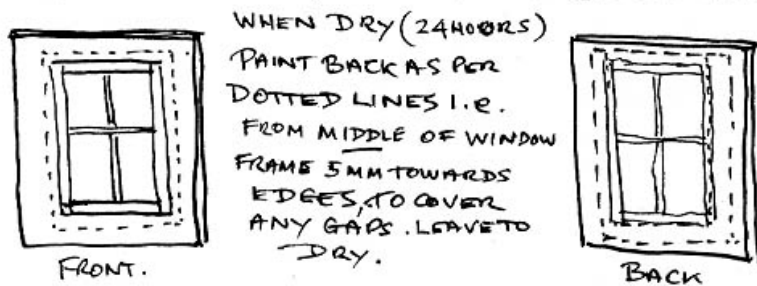 WHEN DRY (24HOURS)
PAINT BACK AS PER
DOTTED LINES I.e.
FROM MIDDLE OF WINDOW
FRAME 5MM TOWARDS
EDGES, TO COVER
ANY GAPS. LEAVE TO
DRY.
FRONT.
BACK